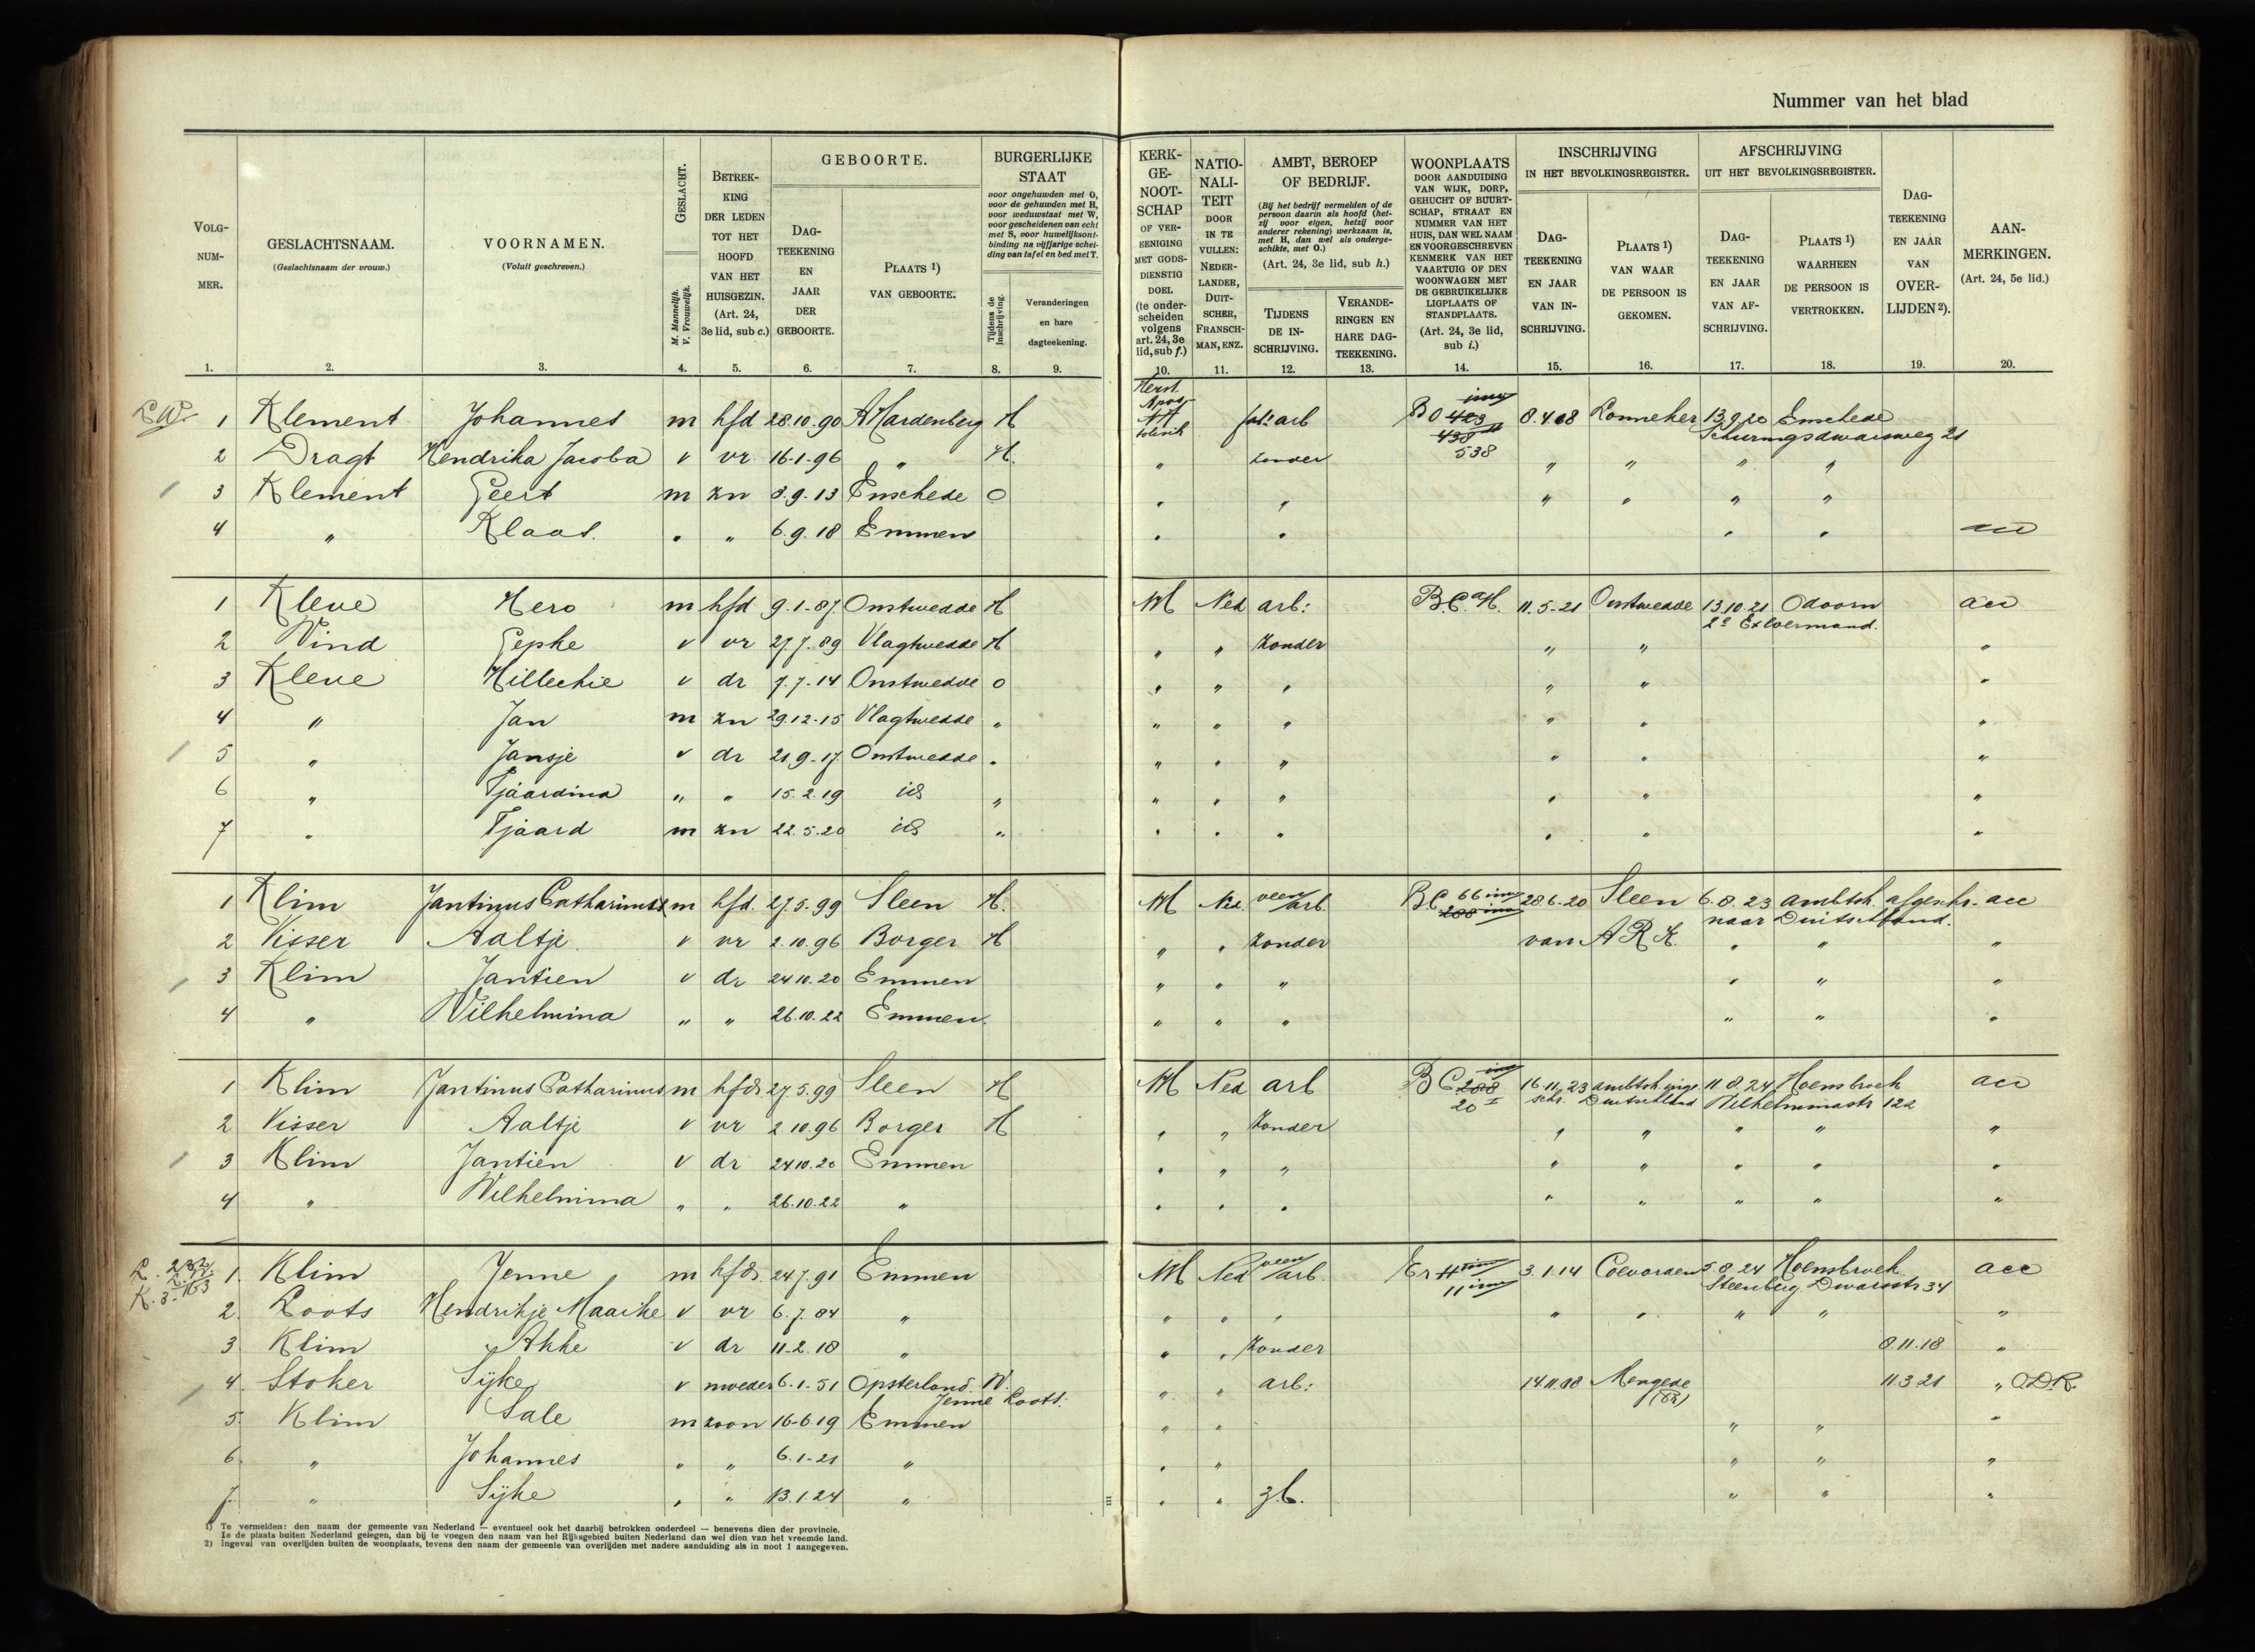 Nummer van het blad
VOLG-NUM-MER. GESLACHTSNAAM. (Geslachtsnaam der vrouw.) VOORNAMEN. (Voluit geschreven.) GESLACHT. M. Mannelijk. V. Vrouwelijk. BETREK-KING DER LEDEN TOT HET HOOFD VAN HET HUISGEZIN. (Art. 24, 3e lid, sub c.) GEBOORTE. DAG-TEEKENING EN JAAR DER GEBOORTE. PLAATS 1) VAN GEBOORTE. BURGERLIJKE STAAT voor ongehuwden met O, voor de gehuwden met H, voor weduwstaat met W, voor gescheidenen van echt met S, voor huwelijksont-binding na vijfjarige schei-ding van tafel en bed met T. Tijdens de inschrijving. Veranderingen en hare dagteekening.
KERK-GE-NOOT-SCHAP OF VER-EENIGING MET GODS-DIENSTIG DOEL (te onder-scheiden volgens art. 24, 3e lid, sub f.) NATIO-NALI-TEIT DOOR IN TE VULLEN: NEDER-LANDER, DUIT-SCHER, FRANSCH-MAN, ENZ. AMBT, BEROEP OF BEDRIJF. (Bij het bedrijf vermelden of de persoon daarin als hoofd (het-zij voor eigen, hetzij voor anderer rekening) werkzaam is, met H, dan wel als onderge-schikte, met O.) (Art. 24, 3e lid, sub h.) TIJDENS DE IN-SCHRIJVING. VERANDE-RINGEN EN HARE DAG-TEEKENING. WOONPLAATS DOOR AANDUIDING VAN WIJK, DORP, GEHUCHT OF BUURT-SCHAP, STRAAT EN NUMMER VAN HET HUIS, DAN WEL NAAM EN VOORGESCHREVEN KENMERK VAN HET VAARTUIG OF DEN WOONWAGEN MET DE GEBRUIKELIJKE LIGPLAATS OF STANDPLAATS. (Art. 24, 3e lid, sub i.) INSCHRIJVING IN HET BEVOLKINGSREGISTER. DAG-TEEKENING EN JAAR VAN IN-SCHRIJVING. PLAATS 1) VAN WAAR DE PERSOON IS GEKOMEN. AFSCHRIJVING UIT HET BEVOLKINGSREGISTER. DAG-TEEKENING EN JAAR VAN AF-SCHRIJVING. PLAATS 1) WAARHEEN DE PERSOON IS VERTROKKEN. DAG-TEEKENING EN JAAR VAN OVER-LIJDEN 2). AAN-MERKINGEN. (Art. 24, 5e lid.)
1. 2. 3. 4. 5. 6. 7. 8. 9. 10. 11. 12. 13. 14. 15. 16. 17. 18. 19. 20.
1 Klement Johannes m hfd 28.10.90 A Hardenberg H Herst. Apos-tolisch arb BO 423 438 538 8.4.18 Lonneker 13.9.20 Enschede
2 Dragt Hendrika Jacoba v vr 16-1-96 " H. " zonder " " " "
3 Klement Geert m zn 3.9.13 Enschede O " " " " " "
4 " Klaas. " " 6.9.18 Emmen " " " " acc
1 Kleve Hero m hfd 9.1-87. Onstwedde H NH Ned arb: B.C.aH. 11.5-21 Onstwedde 13.10.21 Odoorn acc
2e Exloermond.
2 Wind Gepke v vr 27.7.89 Vlagtwedde H " " zonder " " "
3 Kleve Hillechie v dr 7.7-14 Onstwedde O " " " " " "
4 " Jan m zn 29.12-15 Vlagtwedde " " " " " " "
5 " Jansje v dr 21.9-17. Onstwedde " " " " " " "
6 " Tjaardina " " 15.2.19 id " " " " " " "
7 " Tjaard m zn 22.5.20 id " " " " " " "
1 Klim Jantinus Catharinus m hfd. 27.5.99 Sleen H. NH Ned. veen arb BC 66 288 28.6-20 Sleen 6.8.23 ambtsh. afgeschr. acc
naar Duitschland.
2 Visser Aaltje. v vr 2.10.96 Borger H " " zonder van A R K. " " "
3 Klim Jantien v dr 24 10.20 Emmen " " " " " "
4 " Wilhelmina " " 26.10.22 Emmen. " " " " " "
1 Klim Jantinus Catharinus m hfd. 27.5.99 Sleen H NH Ned arb BC 288 20 I 16.11.23 ambtsh. inge schr. Duitschland 11.8.24 Hoensbroek acc
Wilhelminastr 122
2 Visser Aaltje v vr 2 10.96 Borger H " " zonder " " " " "
3 Klim Jantien v dr 24 10.20 Emmen " " " " " " " "
4 " Wilhelmina " " 26.10.22 " " " " " " " " "
1. Klim Jenne m hfd. 24.7.91 Emmen NH Ned veen arb. 11 3.1.14 Coevorden 5.8.24 Hoensbroek acc
Steenberg. Dwarsstr 34
2. Loots Hendrikje Maaike v vr 6.7.84 " " " " " " " " "
3. Klim Akke v dr 11-2.18 " " " zonder 8.11.18 "
4. Stoker Sijke v moeder 6.1-51 Opsterland. W. " " arb: 14.11.18 Mengede 11.3.21 "
Jenne Loots.
5. Klim Sale m zoon 16-6.19 Emmen " " " " "
6. " Johannes " " 6.1-21 " " " " " "
7. " Sijke " " 13.1.24 " " " z.b. " " "
1) Te vermelden: den naam der gemeente van Nederland — eventueel ook het daarbij betrokken onderdeel — benevens dien der provincie.
Is de plaats buiten Nederland gelegen, dan bij te voegen den naam van het Rijksgebied buiten Nederland dan wel dien van het vreemde land.
2) Ingeval van overlijden buiten de woonplaats, tevens den naam der gemeente van overlijden met nadere aanduiding als in noot 1 aangegeven.